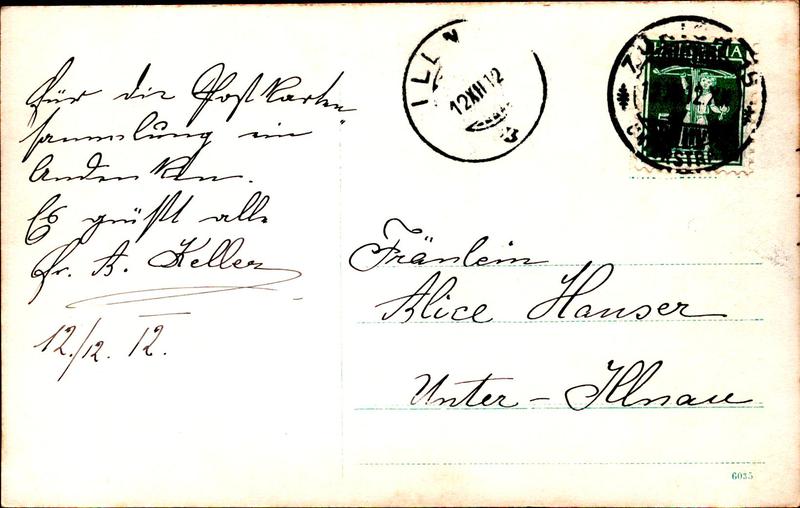 für die Postkarten
sammlung ein
Andenken.
Es grüßt alle
Fr. A. Keller
12./12. 12.
ILLN
12 XII 12
ZÜRICH
HELVETIA
5
Fräulein
Alice Hauser
Unter-Illnau
6035